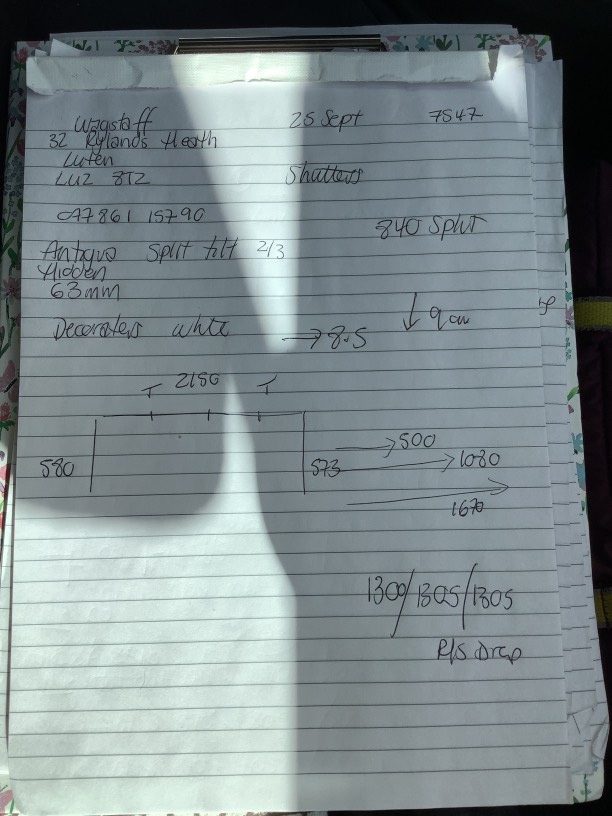 Wagstaff 25 Sept 7547
32 Rylands Heath
Luten
LU2 8TZ Shutters
07861 15790
840 Split
Antique Split tilt 2/3
Hidden
63mm
Decorators white → 8.5 ↓ 9cm
T 2150 T
580 573 → 500
→ 1080
1670
1300/1305/1305
P/S Drop